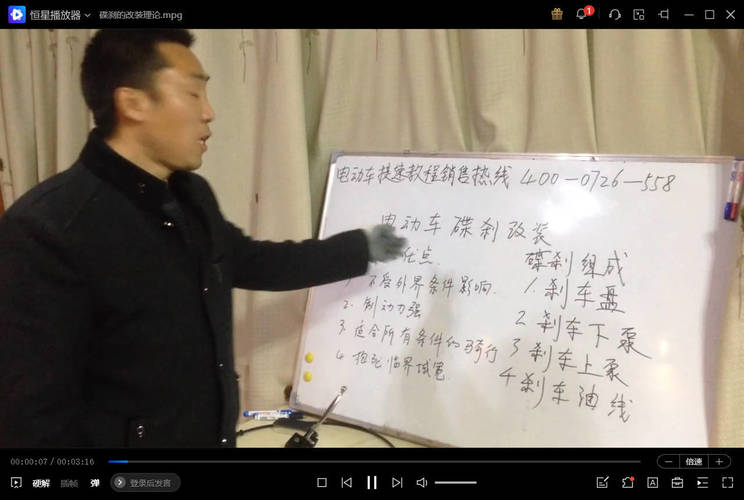 恒星播放器
碟刹的改装理论.mpg
1
电动车提速教程销售热线 400-0726-558
电动车碟刹改装
优点
不受外界条件影响.
2. 制动力强
3. 适合所有条件的骑行
4.
碟刹组成
1. 刹车盘
2 刹车下泵
3 刹车上泵
4 刹车油线
00:00:07 / 00:03:16
倍速
硬解
插帧
弹
登录后发言